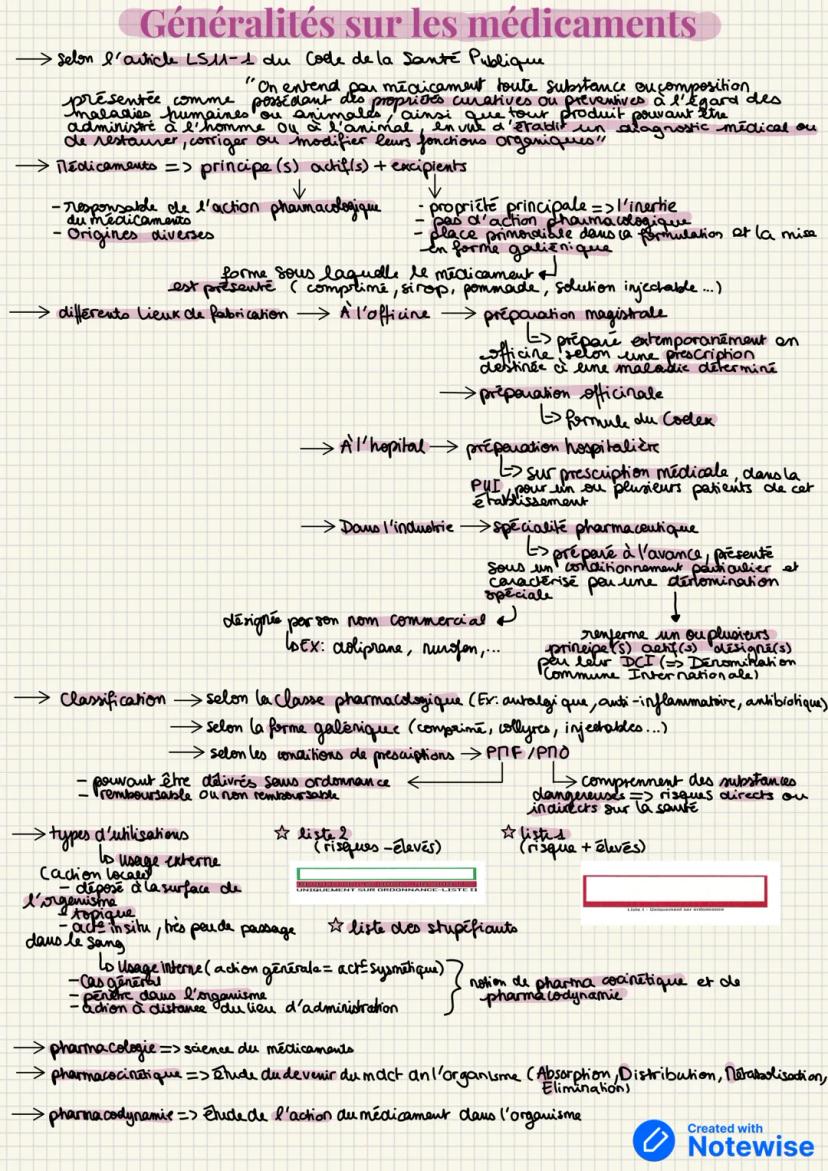 Généralités sur les médicaments
→ selon l'article L511-1 du Code de la Santé Publique
"On entend par médicament toute substance ou composition
présentée comme possédant des propriétés curatives ou préventives à l'égard des
maladies humaines ou animales, ainsi que tout produit pouvant être
administré à l'homme ou à l'animal, en vue d'établir un diagnostic médical ou
de restaurer, corriger ou modifier leurs fonctions organiques"
→ Médicaments => principe(s) actif(s) + excipients
- responsable de l'action pharmacologique
du médicaments
- Origines diverses
- propriété principale => l'inertie
- pas d'action pharmacologique
- place primordiale dans la formulation et la mise
en forme galiénique
forme sous laquelle le médicament
est présenté (comprimé, sirop, pommade, solution injectable...)
→ différents lieux de fabrication → À l'officine → préparation magistrale
↳> préparé extemporanément en
officine selon une prescription
destinée à une maladie déterminé
→ préparation officinale
↳> formule du Codex
→ À l'hopital → préparation hospitalière
↳> sur prescription médicale, dans la
PUI, pour un ou plusieurs patients de cet
établissement
→ Dans l'industrie → spécialité pharmaceutique
↳> préparé à l'avance, présenté
sous un conditionnement particulier et
caractérisé par une dénomination
spéciale
désignée par son nom commercial
↳ EX: doliprane, nurofen,...
renferme un ou plusieurs
principe(s) actif(s) désigné(s)
par leur DCI (=> Dénomination
Commune Internationale)
→ Classification → selon la classe pharmacologique (Ex: antalgique, anti-inflammatoire, antibiotique)
→ selon la forme galénique (comprimé, collyres, injectables...)
→ selon les conditions de presciptions → PMF / PMO
- pouvant être délivrés sans ordonnance
- remboursable ou non remboursable
↳> comprennent des substances
dangereuses => risques directs ou
indirects sur la santé
→ types d'utilisations
☆ liste 2
(risques - élevés)
☆ liste 1
(risque + élevés)
UNIQUEMENT SUR ORDONNANCE-LISTE II
Liste I - Uniquement sur ordonnance
↳ usage externe
(action locale)
- déposé à la surface de
l'organisme
= topique
- act° in situ, très peu de passage
dans le sang
☆ liste des stupéfiants
↳ Usage interne (action générale = act° sysmétique)
- Cas général
- pénètre dans l'organisme
- action à distance du lieu d'administration
notion de pharmacocinétique et de
pharmacodynamie
→ pharmacologie => science du médicaments
→ pharmacocinétique => étude du devenir du mdct dn l'organisme (Absorption, Distribution, Métabolisation,
Elimination)
→ pharmacodynamie => étude de l'action du médicament dans l'organisme
Created with
Notewise